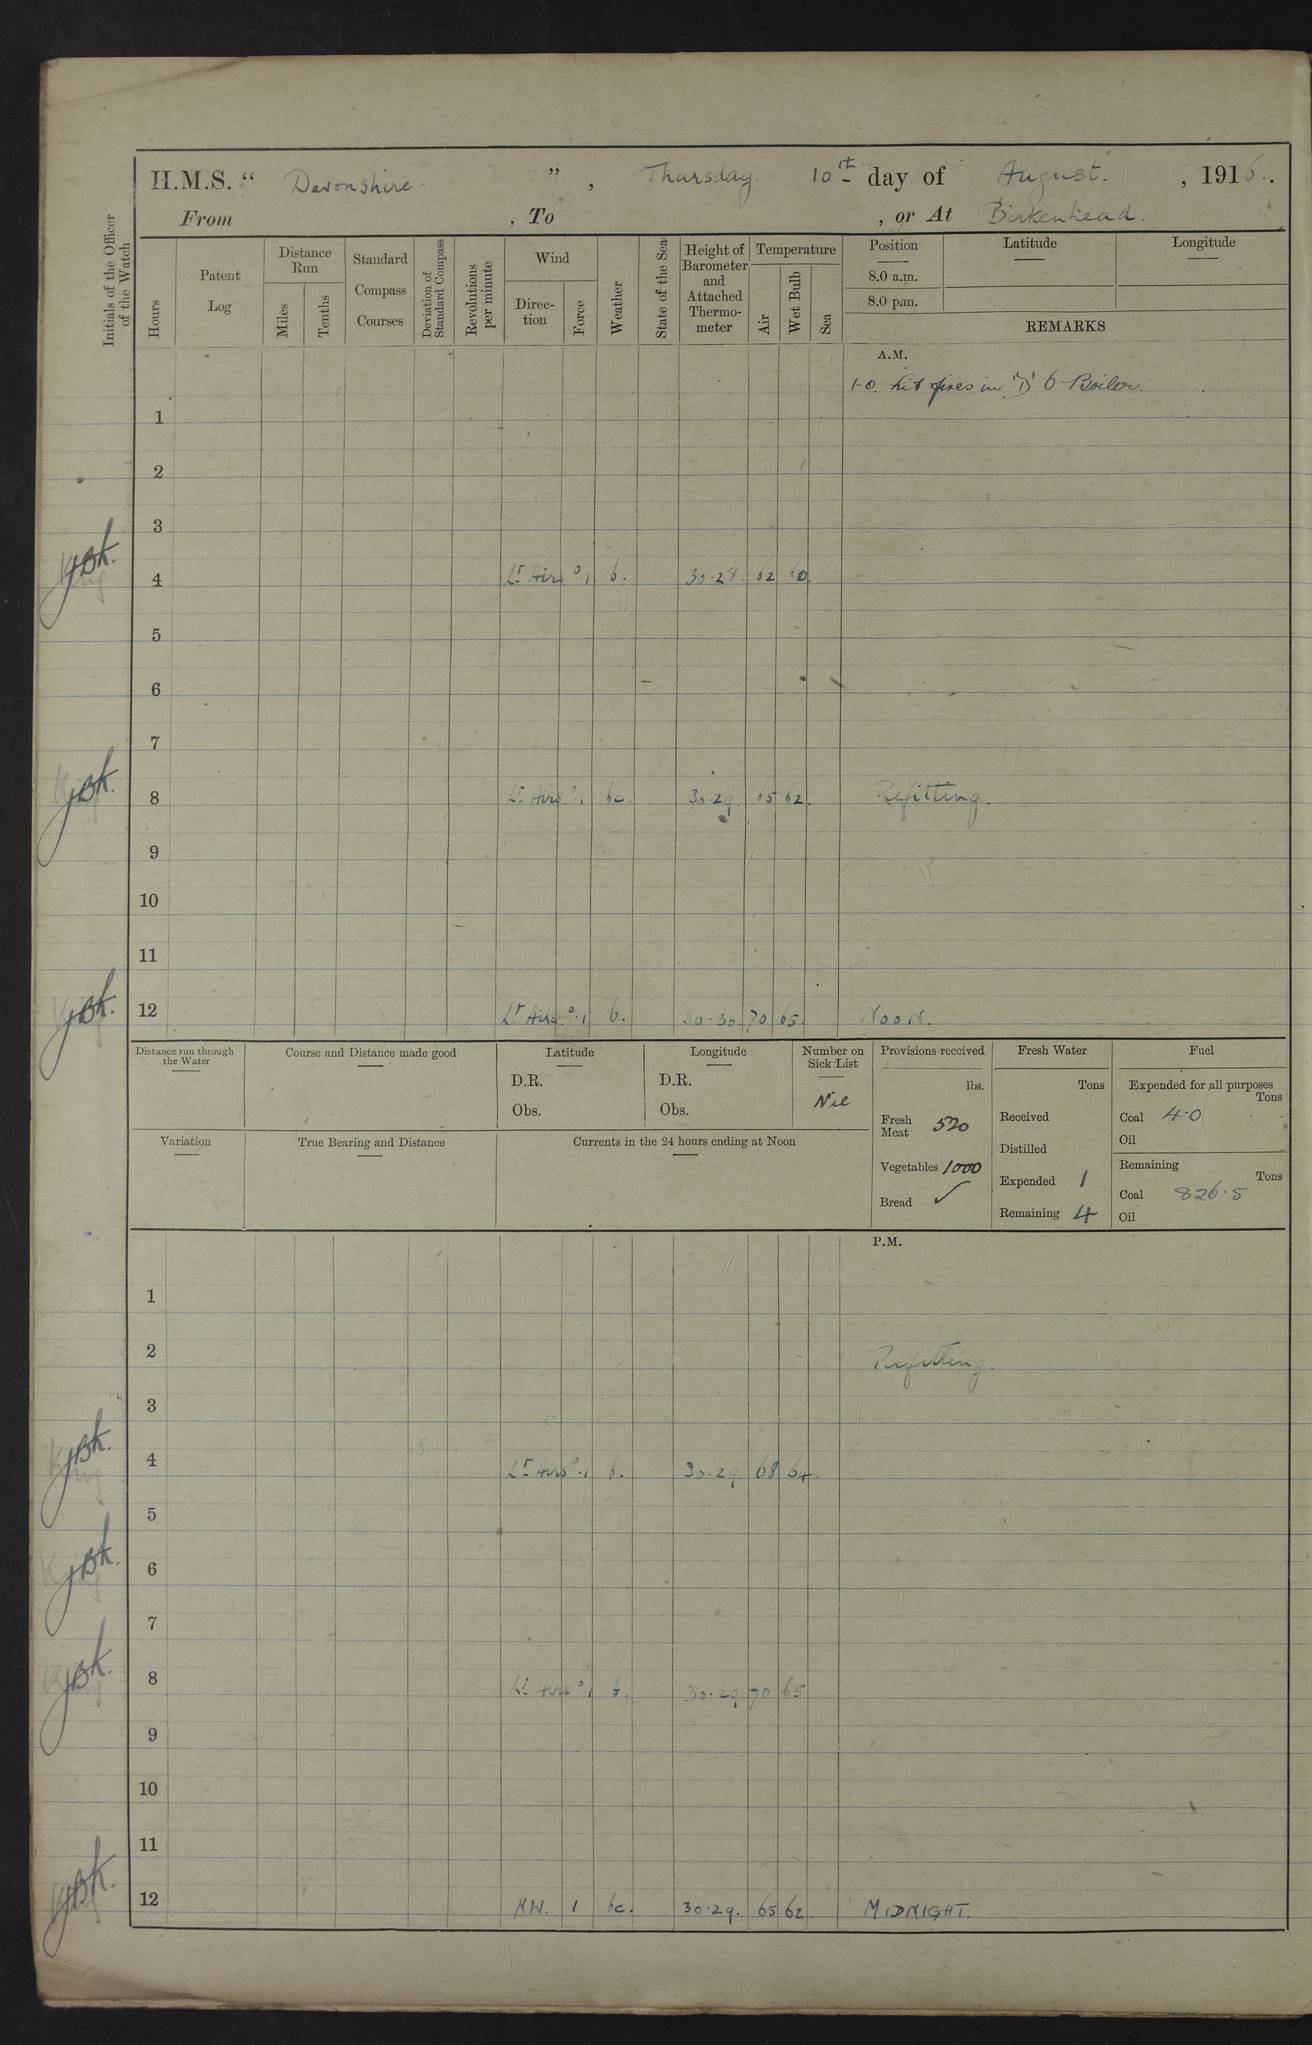 H.M.S. “ Devonshire. ”, Thursday. 10th day of August. , 1916.
From , To , or At Birkenhead.
Initials of the Officer of the Watch
Hours
Patent Log
Distance Run
Miles
Tenths
Standard Compass Courses
Deviation of Standard Compass
Revolutions per minute
Wind
Direction
Force
Weather
State of the Sea
Height of Barometer and Attached Thermometer
Temperature
Air
Wet Bulb
Sea
Position
8.0 a.m.
8.0 p.m.
Latitude
Longitude
REMARKS
A.M.
1-0. Lit fires in "D" 6 Boiler.
1
2
3
JBK.
4 Lt Airs 0.1 b. 30.28. 62 60
5
6
7
JBK.
8 Lt Airs 0.1 bc. 30.29. 65 62. Refitting.
9
10
11
JBK.
12 Lt Airs. 0.1 b. 30.30. 70 65. NOON.
Distance run through the Water
Course and Distance made good
Latitude
D.R.
Obs.
Longitude
D.R.
Obs.
Number on Sick List
Nil
Provisions received
lbs.
Fresh Meat 520
Vegetables 1000
Bread ✓
Fresh Water
Tons
Received
Distilled
Expended 1
Remaining 4
Fuel
Expended for all purposes
Tons
Coal 4.0
Oil
Remaining
Tons
Coal 826.5
Oil
Variation
True Bearing and Distance
Currents in the 24 hours ending at Noon
P.M.
1
2 Refitting.
3
JBK.
4 Lt Airs 0.1 b. 30.29 68 64.
5
JBK.
6
7
JBK.
8 Lt Airs 0.1 b. 30.29 70 65
9
10
11
JBK.
12 NW. 1 bc. 30.29. 65 62. MIDNIGHT.